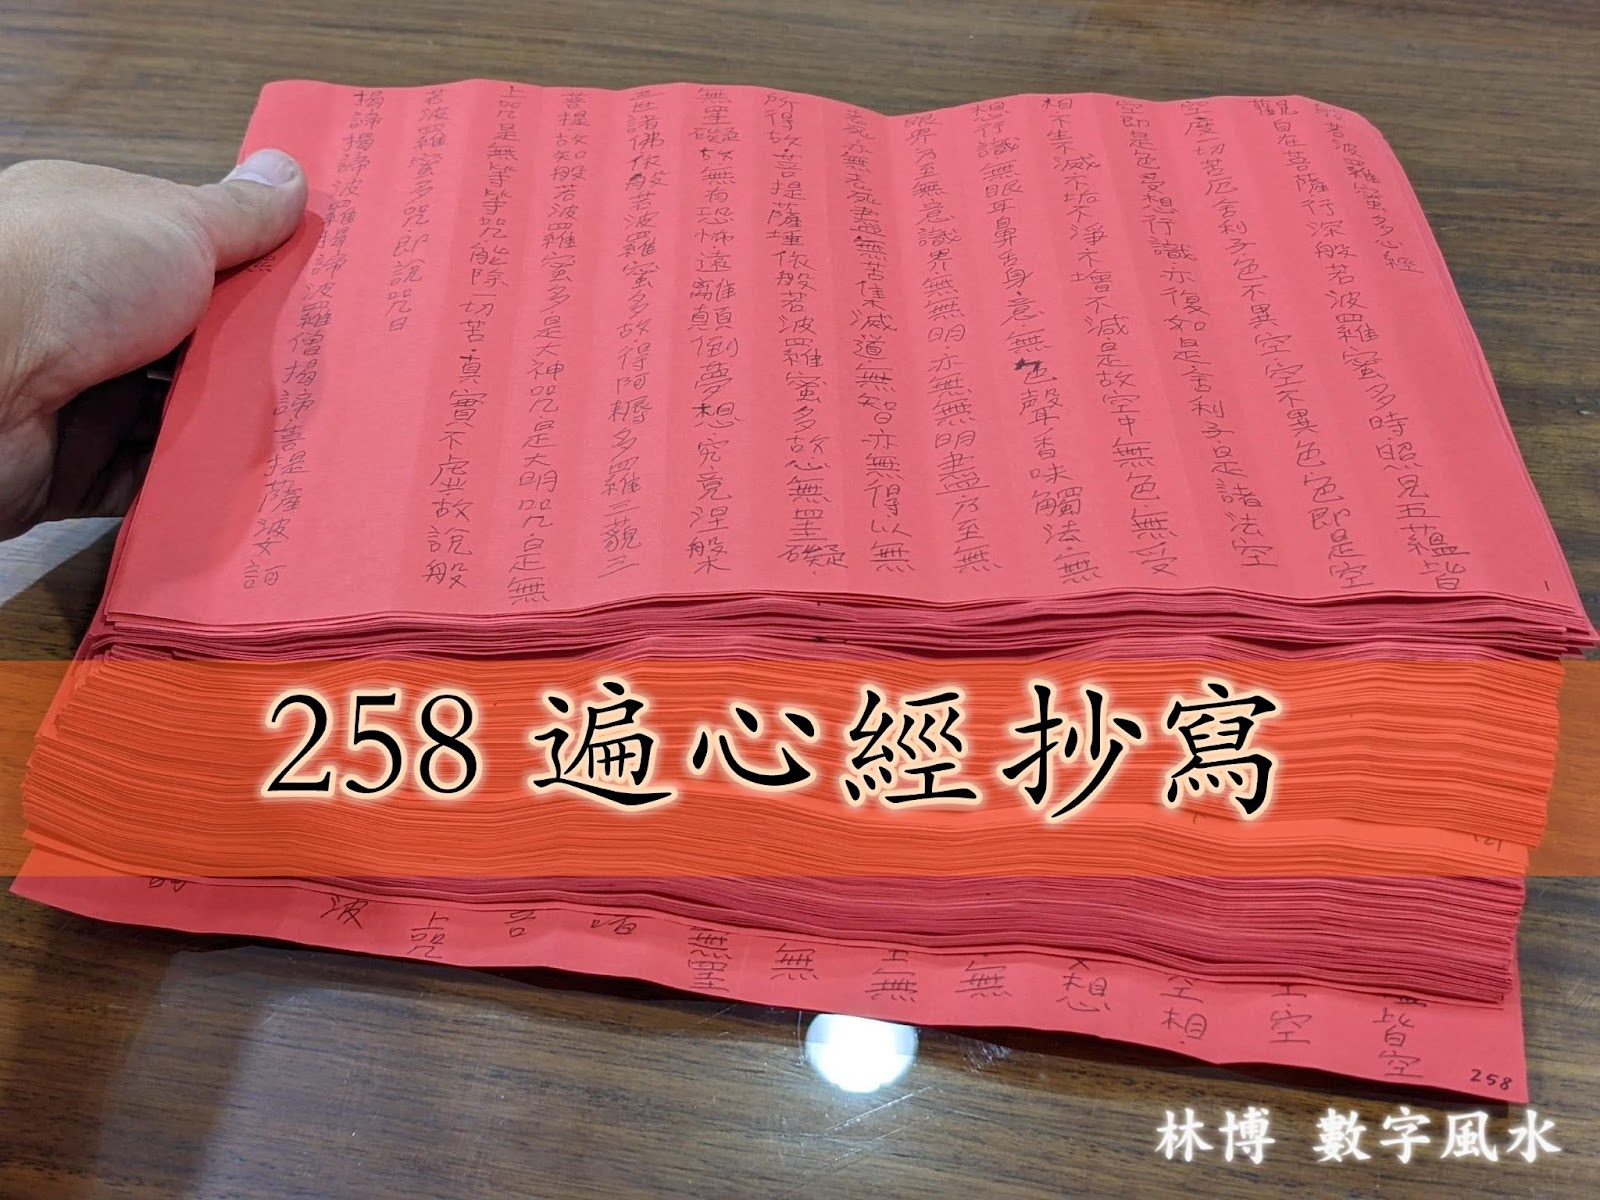 般若波羅蜜多心經
觀自在菩薩行深般若波羅蜜多時照見五蘊皆
空度一切苦厄舍利子色不異空·空不異色色即是空
空即是色受想行識亦復如是舍利子是諸法空
相不生不滅不垢不淨不增不減是故空中無色·無受
想行識無眼耳鼻舌身意·無色聲香味觸法·無
眼界乃至無意識界無無明亦無無明盡乃至無
老死亦無老死盡無苦集滅道無智亦無得以無
所得故·菩提薩埵依般若波羅蜜多故心無罣礙·
無罣礙故無有恐怖遠離顛倒夢想究竟涅槃
三世諸佛依般若波羅蜜多故·得阿耨多羅三藐三
菩提故知般若波羅蜜多是大神咒是大明咒·是無
上咒是無等等咒能除一切苦·真實不虛故說般
若波羅蜜多咒·即說咒曰
揭諦揭諦波羅揭諦波羅僧揭諦菩提薩婆訶
1
258 遍心經抄寫
121
皆空
空
空相·
想
無
無
無
無罣
上咒
波
258
林博 數字風水